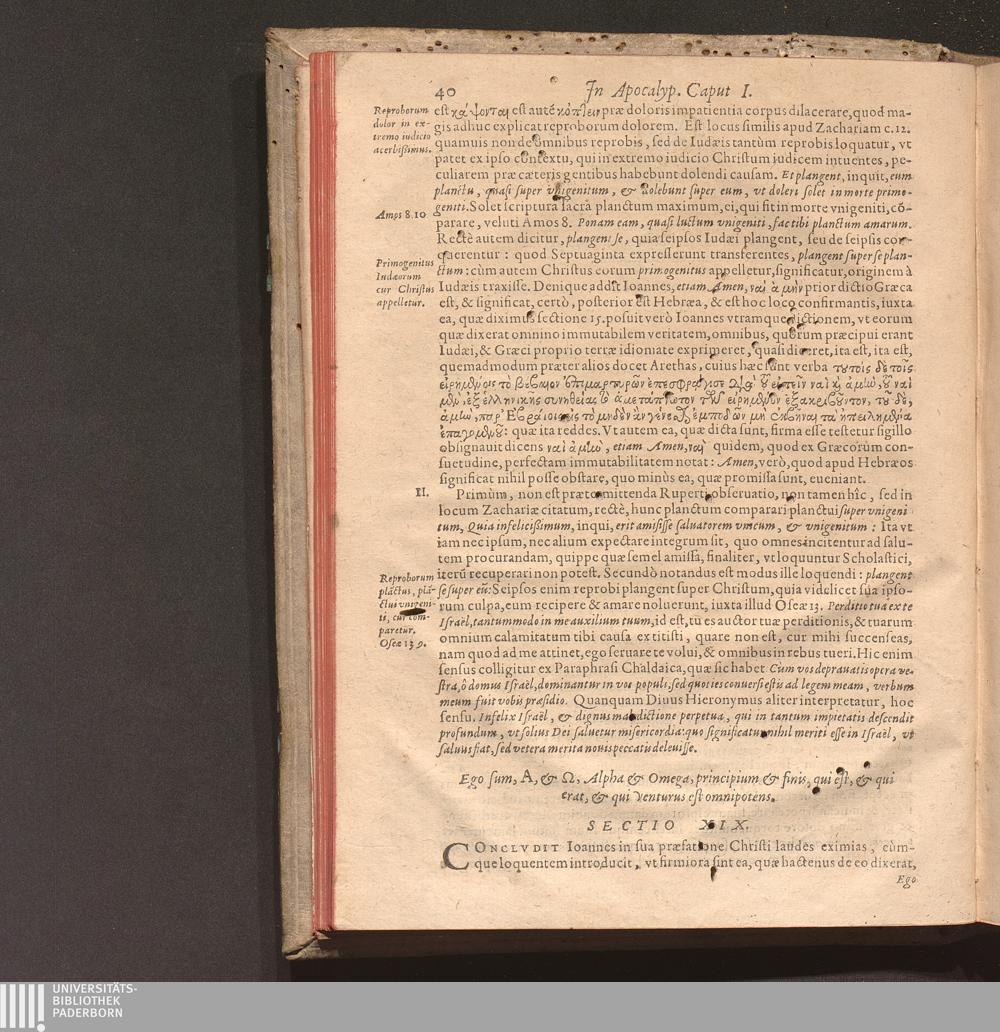 40 In Apocalyp. Caput I.
Reproborum
dolor in ex-
tremo iudicio
acerbissimus.
est κόψονται est autē κόπτειν præ doloris impatientia corpus dilacerare, quod ma-
gis adhuc explicat reproborum dolorem. Est locus similis apud Zachariam c.12.
quamuis non de omnibus reprobis, sed de Iudæis tantùm reprobis loquatur, vt
patet ex ipso contextu, qui in extremo iudicio Christum iudicem intuentes, pe-
culiarem præ cæteris gentibus habebunt dolendi causam. Et plangent, inquit, eum
planctu, quasi super vnigenitum, & dolebunt super eum, vt doleri solet in morte primo-
geniti. Solet scriptura sacra planctum maximum, ei, qui fit in morte vnigeniti, cō-
Amos 8.10
parare, veluti Amos 8. Ponam eam, quasi luctum vnigeniti, fac tibi planctum amarum.
Rectè autem dicitur, plangent se, quia seipsos Iudæi plangent, seu de seipsis con-
quærentur: quod Septuaginta expresserunt transferentes, plangent super se plan-
Primogenitus
Iudæorum
cur Christus
appelletur.
ctum: cùm autem Christus eorum primogenitus appelletur, significatur, originem à
Iudæis traxisse. Denique addit Ioannes, etiam Amen, ναὶ ἀμὴν prior dictio Græca
est, & significat, certò, posterior est Hebræa, & est hoc loco confirmantis, iuxta
ea, quæ diximus sectione 15. posuit verò Ioannes vtramque dictionem, vt eorum
quæ dixerat omnino immutabilem veritatem, omnibus, quorum præcipui erant
Iudæi, & Græci proprio terræ idiomate exprimeret, quasi diceret, ita est, ita est,
quemadmodum præter alios docet Arethas, cuius hæc sunt verba τούτοις δὲ τοῖς
εἰρημένοις τὸ βέβαιον ἐπιμαρτυρῶν ἐπεσφράγισε
ἐξ ἑλληνικῆς συνηθείας
ἐπαγομένου: quæ ita reddes. Vt autem ea, quæ dicta sunt, firma esse testetur sigillo
obsignauit dicens ναὶ ἀμὴν, etiam Amen, ναὶ quidem, quod ex Græcorum con-
suetudine, perfectam immutabilitatem notat: Amen, verò, quod apud Hebræos
significat nihil posse obstare, quo minùs ea, quæ promissa sunt, eueniant.
II.
Primùm, non est prætermittenda Ruperti obseruatio, non tamen hîc, sed in
locum Zachariæ citatum, rectè, hunc planctum comparari planctui super vnigeni
tum, Quia infelicissimum, inqui, erit amisisse saluatorem vnicum, & vnigenitum: Ita vt
iam nec ipsum, nec alium expectare integrum sit, quo omnes incitentur ad salu-
tem procurandam, quippe quæ semel amissa, finaliter, vt loquuntur Scholastici,
Reproborum
plāctus, plā-
ctui vnigeni-
ti, cur com-
paretur.
Oseæ 13.9.
iterū recuperari non potest. Secundò notandus est modus ille loquendi: plangent
se super eū: Seipsos enim reprobi plangent super Christum, quia videlicet sua ipso-
rum culpa, eum recipere & amare noluerunt, iuxta illud Oseæ 13. Perditio tua ex te
Israël, tantummodo in me auxilium tuum, id est, tu es auctor tuæ perditionis, & tuarum
omnium calamitatum tibi causa extitisti, quare non est, cur mihi succenseas,
nam quod ad me attinet, ego seruare te volui, & omnibus in rebus tueri. Hic enim
sensus colligitur ex Paraphrasi Chaldaica, quæ sic habet Cùm vos deprauatis opera ve-
stra, ô domus Israël, dominantur in vos populi, sed quoties conuersi estis ad legem meam, verbum
meum fuit vobis præsidio. Quanquam Diuus Hieronymus aliter interpretatur, hoc
sensu. Infelix Israël, & dignus maledictione perpetua, qui in tantum impietatis descendit
profundum, vt solius Dei saluetur misericordia: quo significatur nihil meriti esse in Israël, vt
saluus fiat, sed vetera merita nouis peccatis deleuisse.
Ego sum, A, & Ω, Alpha & Omega, principium & finis, qui est, & qui
erat, & qui venturus est omnipotens.
SECTIO XIX.
CONCLVDIT Ioannes in sua præfatione Christi laudes eximias, cùm-
que loquentem introducit, vt firmiora sint ea, quæ hactenus de eo dixerat,
Ego
UNIVERSITÄTS-
BIBLIOTHEK
PADERBORN